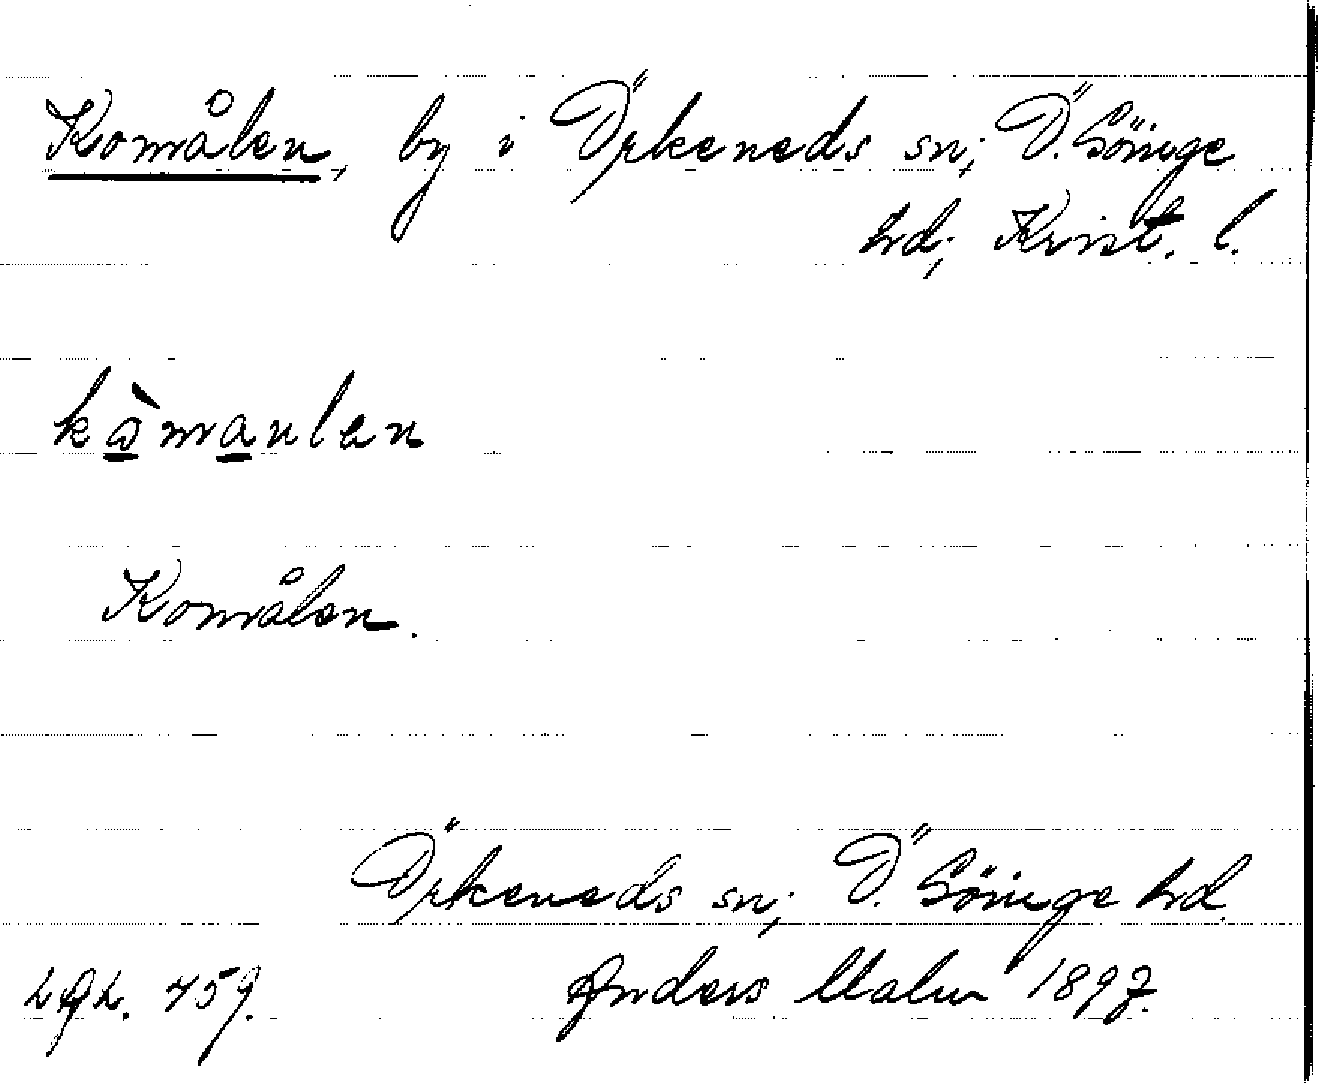 Komålen, by i Örkeneds sn; Ö. Göinge
hd; Krist. l.
kòmaulen
Komålen.
Örkeneds sn; Ö. Göinge hd.
459. Anders Malm 1897.